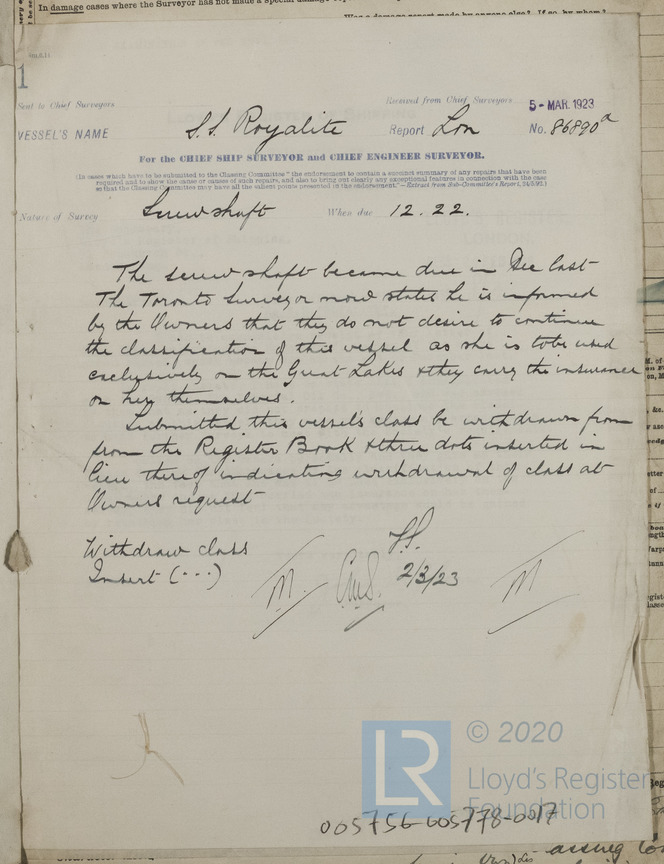 In damage cases where the Surveyor has not made a special damage
Was a damage report made by anyone else? If so, by whom?
1
Sent to Chief Surveyors
Received from Chief Surveyors 5 - MAR. 1923
VESSEL'S NAME S.S. Royalite Report Lon No. 86890a
For the CHIEF SHIP SURVEYOR and CHIEF ENGINEER SURVEYOR.
(In cases which have to be submitted to the Classing Committee "the endorsement to contain a succinct summary of any repairs that have been
required and to show the cause or causes of such repairs, and also to bring out clearly any exceptional features in connection with the case
so that the Classing Committee may have all the salient points presented in the endorsement."—Extract from Sub-Committee's Report,
Nature of Survey Screwshaft When due 12.22.
The screwshaft became due in Dec last
The Toronto Surveyor now states he is informed
by the Owners that they do not desire to continue
the classification of this vessel as she is to be used
exclusively on the Great Lakes & they carry the insurance
on her themselves.
Submitted this vessel's class be withdrawn from
from the Register Book & three dots inserted in
lieu thereof indicating withdrawal of class at
Owners request
Withdraw class
Insert (...)
2/3/23
LR
© 2020
Lloyd's Register
Foundation
005756-005778-0017